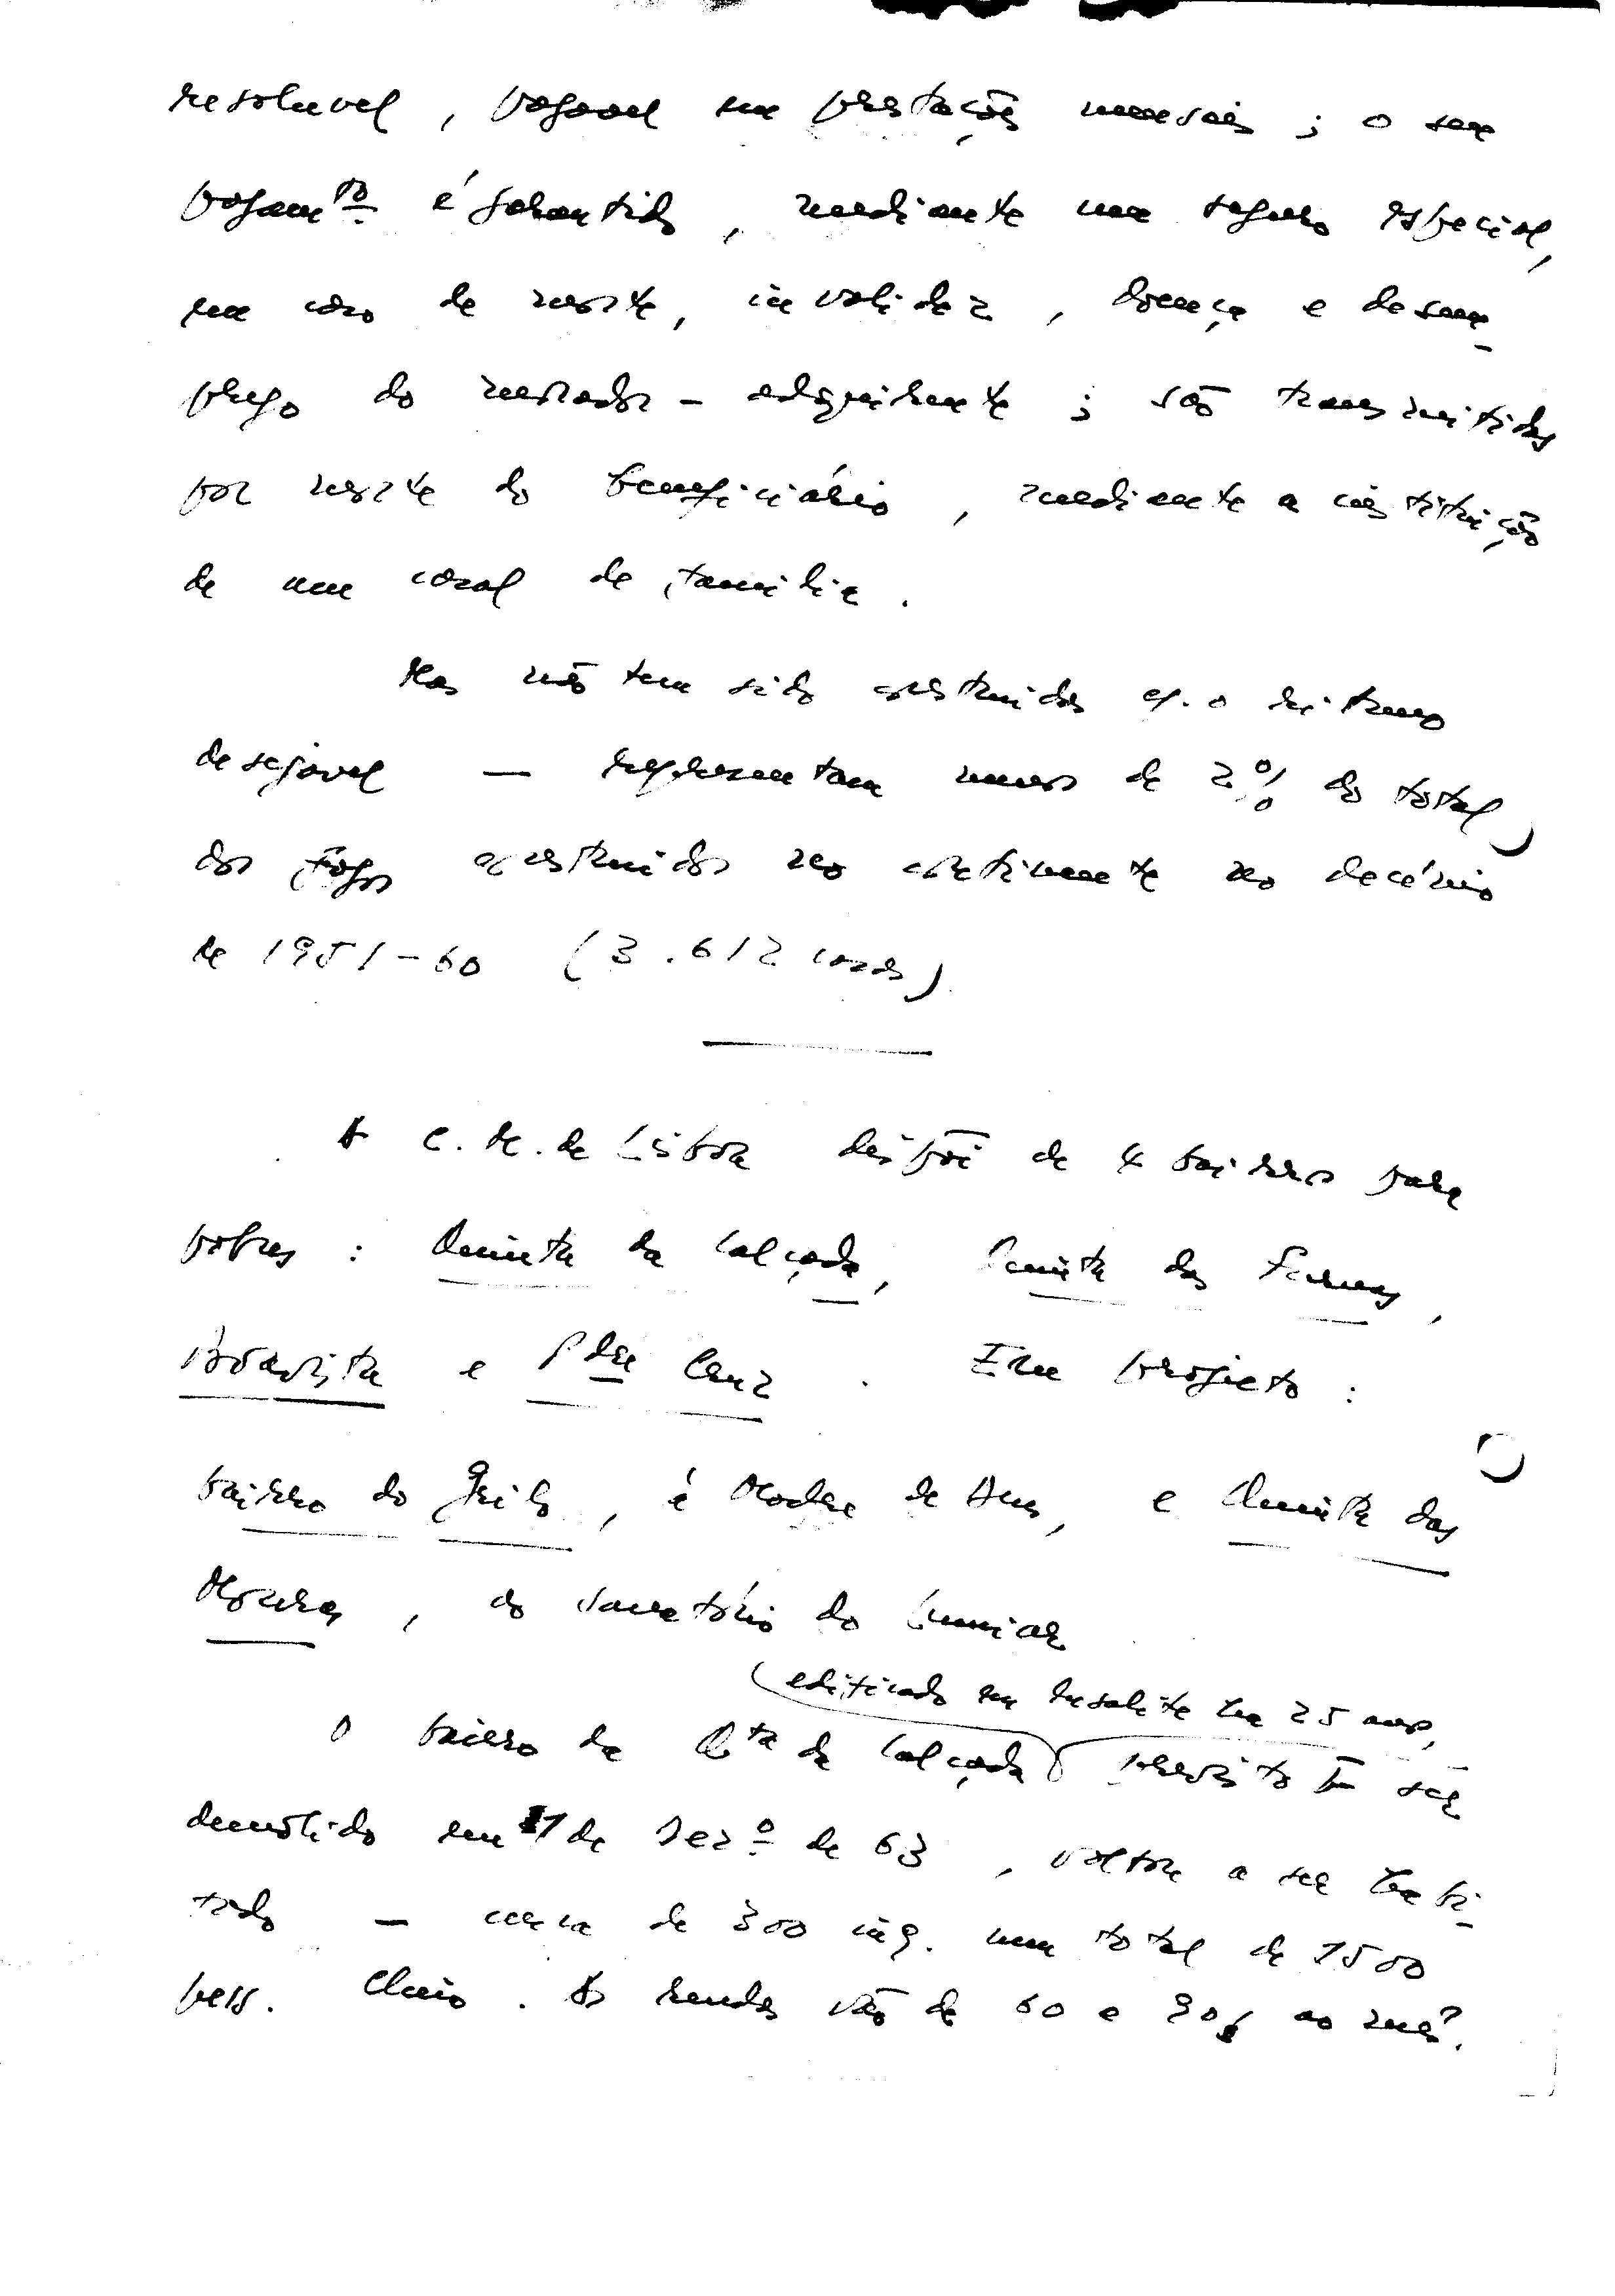 resoluvel, pagavel em prestações mensais; o seu
pagamto. é garantido, mediante um seguro especial,
em caso de morte, invalidez, doença e desem-
prego do morador-adquirente; são transmitidas
por morte do beneficiário, mediante a instituição
de um casal de família.
Mas não tem sido construidas c/. o ritmo
desejavel — representam menos de 2% do total
dos fogos construidos no continente no decénio
de 1951-60 (3.612 casas)
A C. M. de Lisboa dispõe de 4 bairros para
pobres: Quinta da Calçada, Quinta das Furnas,
Boavista e Pde Cruz. Em projecto:
bairro do Grilo, á Madre de Deus, e Quinta das
Mouras, ao sanatório do Lumiar
edificado em lusalite ha 25 anos,
O bairro da Qta da Calçada previsto p̄ ser
demolido em 1 de Dezº de 63, voltou a ser habi-
tado — cerca de 300 inq. num total de 1500
pess. Cheio. As rendas vão de 60 a 90$ ao mês.